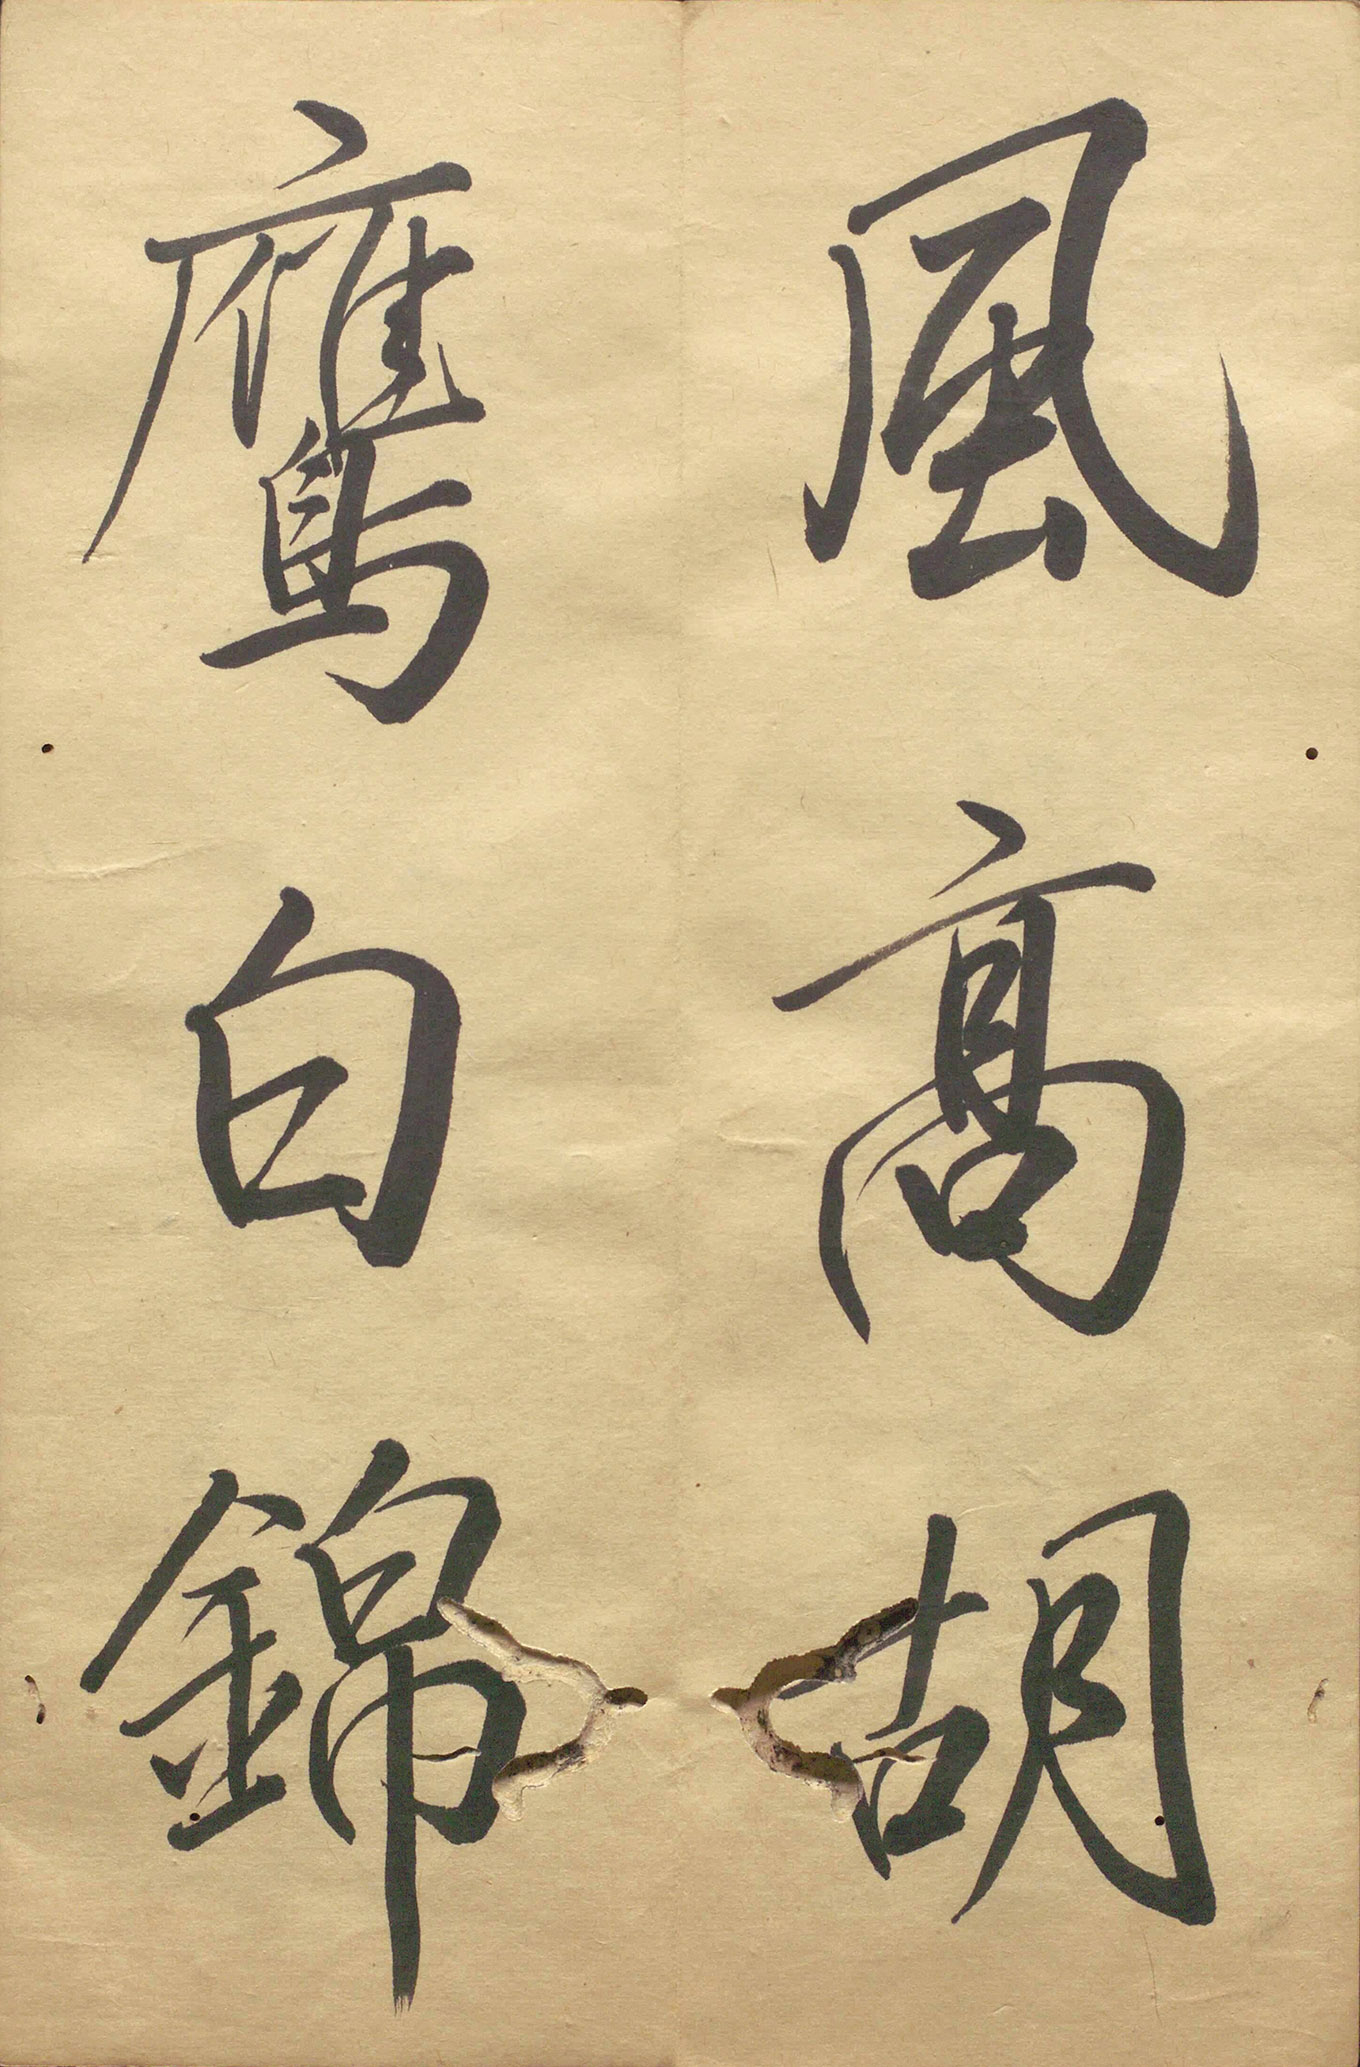 風高胡
鷹白錦